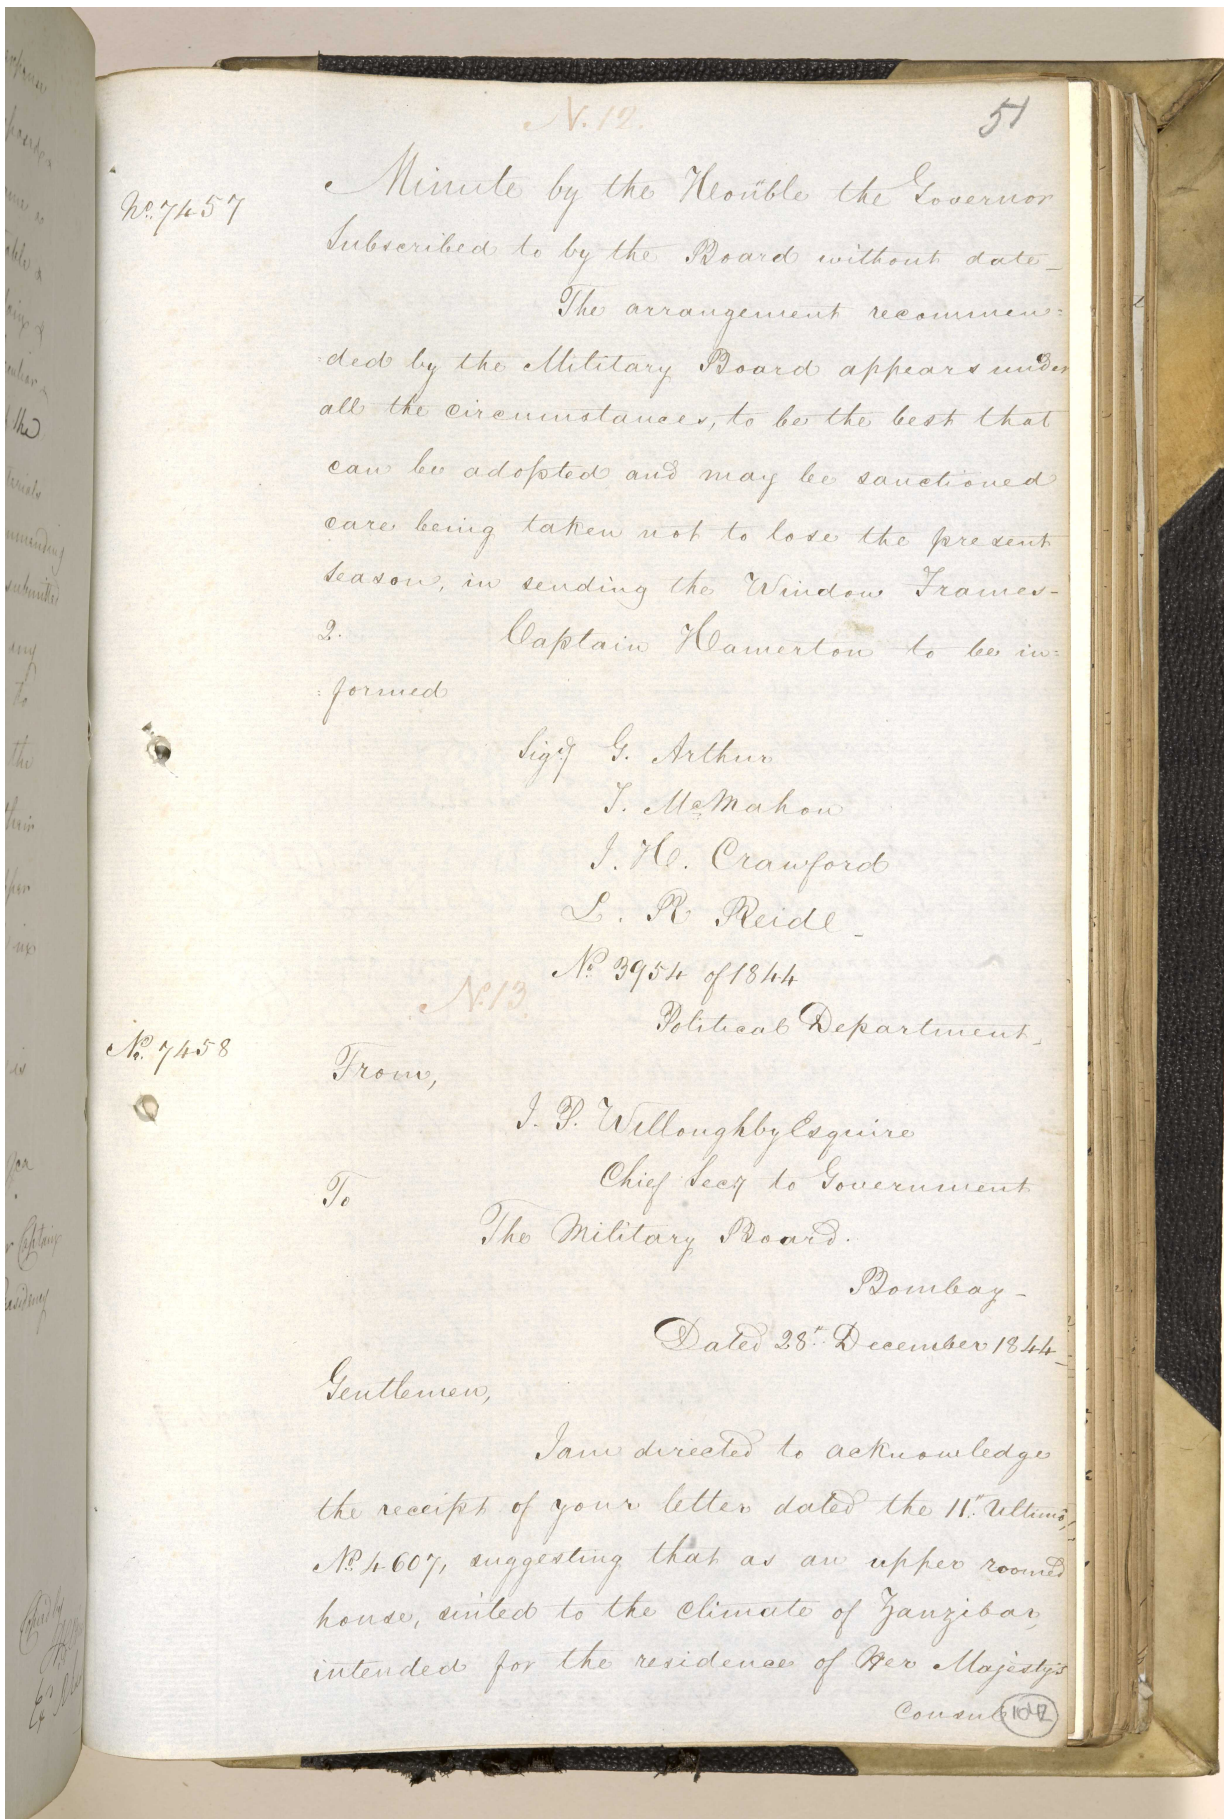 N. 12.
51
No. 7457
Minute by the Honble the Governor
Subscribed to by the Board without date_
The arrangement recommen=
=ded by the Military Board appears under
all the circumstances, to be the best that
can be adopted and may be sanctioned
care being taken not to lose the present
season, in sending the Window Frames-
2. Captain Hamerton to be in=
=formed
Sigd/ G. Arthur
T. McMahon
J. H. Crawford
L. R Reidl_
No. 3954 of 1844
N. 13.
Political Department,
No. 7458
From,
J. P. Willoughby Esquire
Chief Secy to Government
To
The Military Board.
Bombay-
Dated 28th December 1844_
Gentlemen,
I am directed to acknowledge
the receipt of your letter dated the 11th Ultimo,
No. 4607, suggesting that as an upper roomed
house, suited to the climate of Zanzibar,
intended for the residence of Her Majesty's
Consul
102
the
the